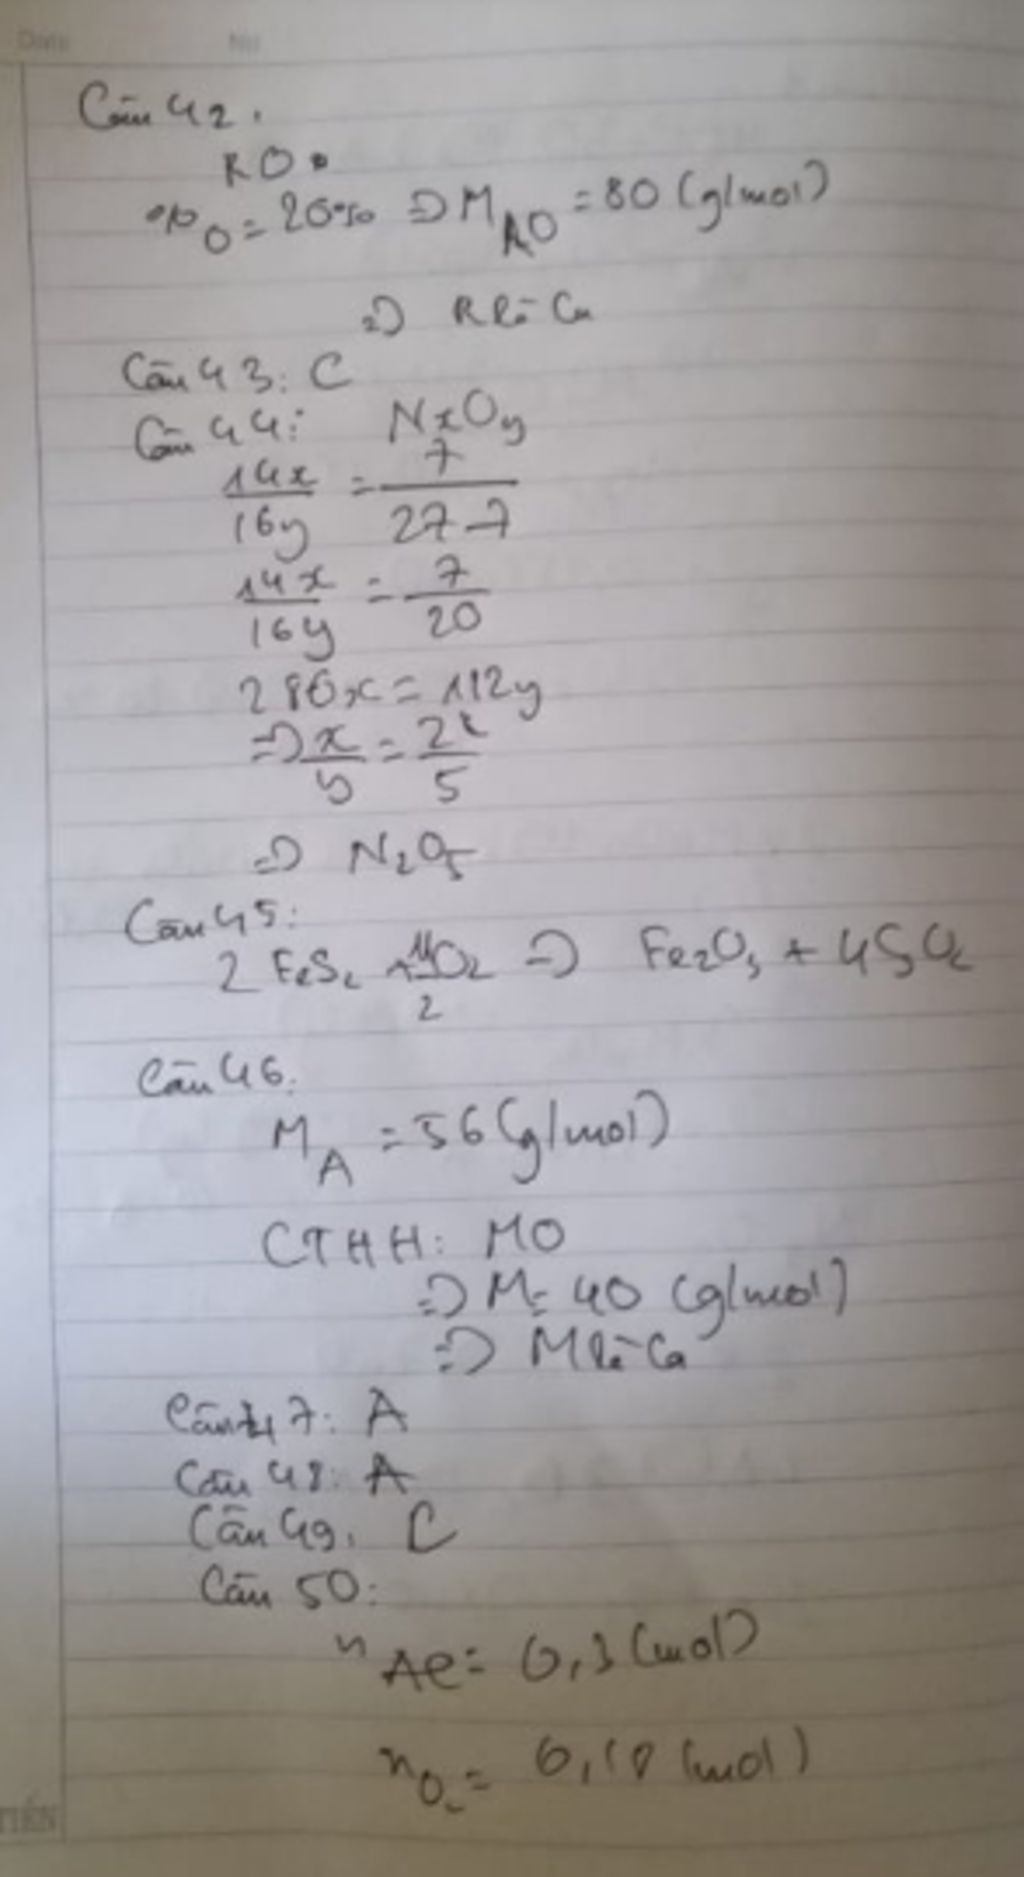 Date No
Câu 42.
RO
%O = 20% => M RO = 80 (g/mol)
=> R là Cu
Câu 43: C
Câu 44: NxOy
14x/16y = 7/27-7
14x/16y = 7/20
280x = 112y
=> x/y = 2/5
=> N2O5
Câu 45:
2 FeS2 + 11/2 O2 => Fe2O3 + 4SO2
Câu 46.
M A = 56 (g/mol)
CTHH: MO
=> M = 40 (g/mol)
=> M là Ca
Câu 47: A
Câu 48: A
Câu 49. C
Câu 50:
n Al = 0,3 (mol)
n O2 = (mol)
TIẾN